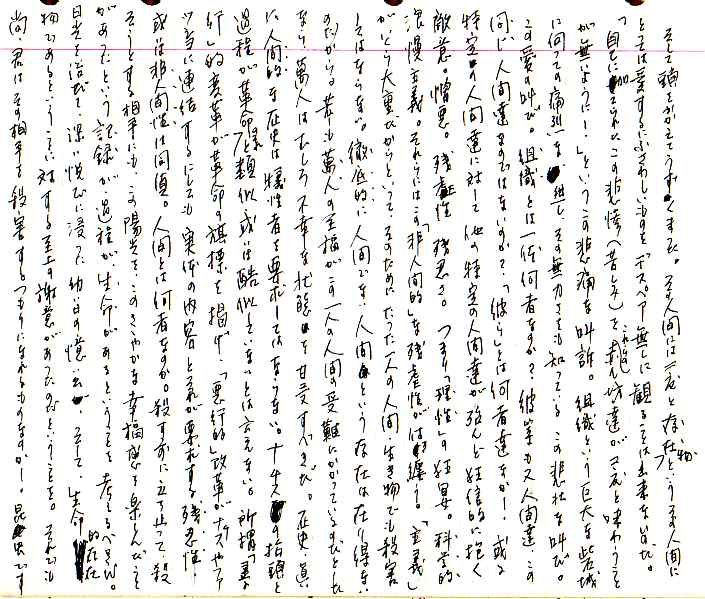 そして頭をかかえてうずくまる。その人間には一応と存在物というその人間に
とっては愛するにふさわしいものをデスペア無しに観ることは出来ないのだ。
「自らに加えられたこの悲惨(苦しみ)を、これから赤ん坊達が　　と味わうこと
が無いように！」というこの悲痛な叫訴。組織という巨大な岩城
に向っての痛烈な　　その無力さをも知っている。この悲壮な叫び。
この愛の叫び。組織とは一体何者なのか？　彼等も又人間達、この
同じ人間達なのではないのか？「彼ら」とは何者達なのか！或る
特定の人間達に対して他の特定の人間達が殆んど狂信的に抱く
敵意。憎悪。残虐性　残忍さ。つまり「理性」の狂宴。科学的
浪漫主義。それらにはこの「非人間的」な残虐性が付き纏う。「主義」
がいくら大事だからといってそのためにたった一人の人間・生き物でも殺害
してはならない。徹底的に人間です、人間という存在は在り得ない
のだから。若しも萬人の至福がこの一人の人間の受難にかかっているのだとした
なら萬人はむしろ不幸な状態を甘受すべきだ。歴史・真
に人間的な歴史は犠牲者を要求してはならない。ナチスの指標と
過程が「革命」様と類似或いは酷似していないとは言えない。所謂「善
行」的変革が革命の旗標を掲げ、「悪行的」改革がナチズムやファ
ッ　に連結するにしても実体の内容とそれが要求する残忍性・
或は非人間性は同値。人間とは何者なのか。殺す前に立ち止って、殺
そうとする相手にも、この陽光を、このささやかな幸福感を楽しんだこと
があったという記録が、過程が、生命があるということを考えるべきだ。
日光を浴びて、深い悦びに浸った幼い日の憶い出が、そして、生命的存在
物であるということに対する至上の謝意があったのだということを。それでも
尚、君はその相手を殺害するつもりになれるものなのか！昆虫です